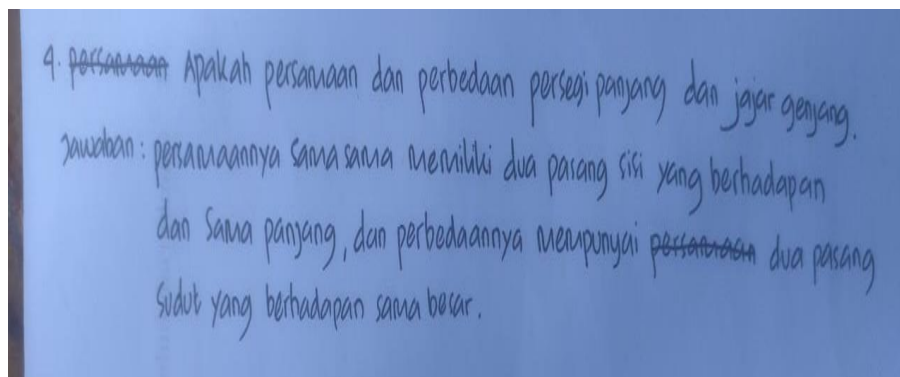 4. persamaan Apakah persamaan dan perbedaan persegi panjang dan jajar genjang.
Jawaban : persamaannya sama sama memiliki dua pasang sisi yang berhadapan
dan sama panjang, dan perbedaannya mempunyai persamaan dua pasang
sudut yang berhadapan sama besar.